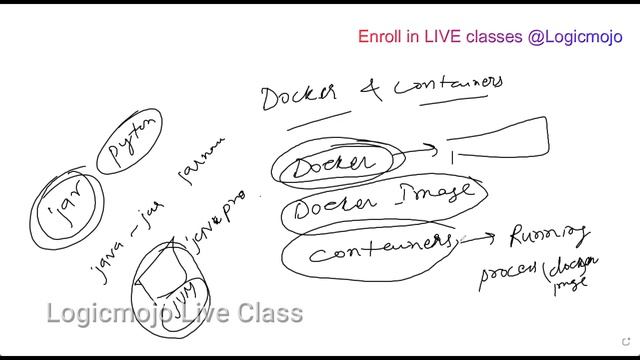 Enroll in LIVE classes @Logicmojo
Docker & Containers
pyton
jar
java - jar jarnm
java pro
JVM
Docker
Docker Image
Containers
Running
process/docker
image
Logicmojo Live Class